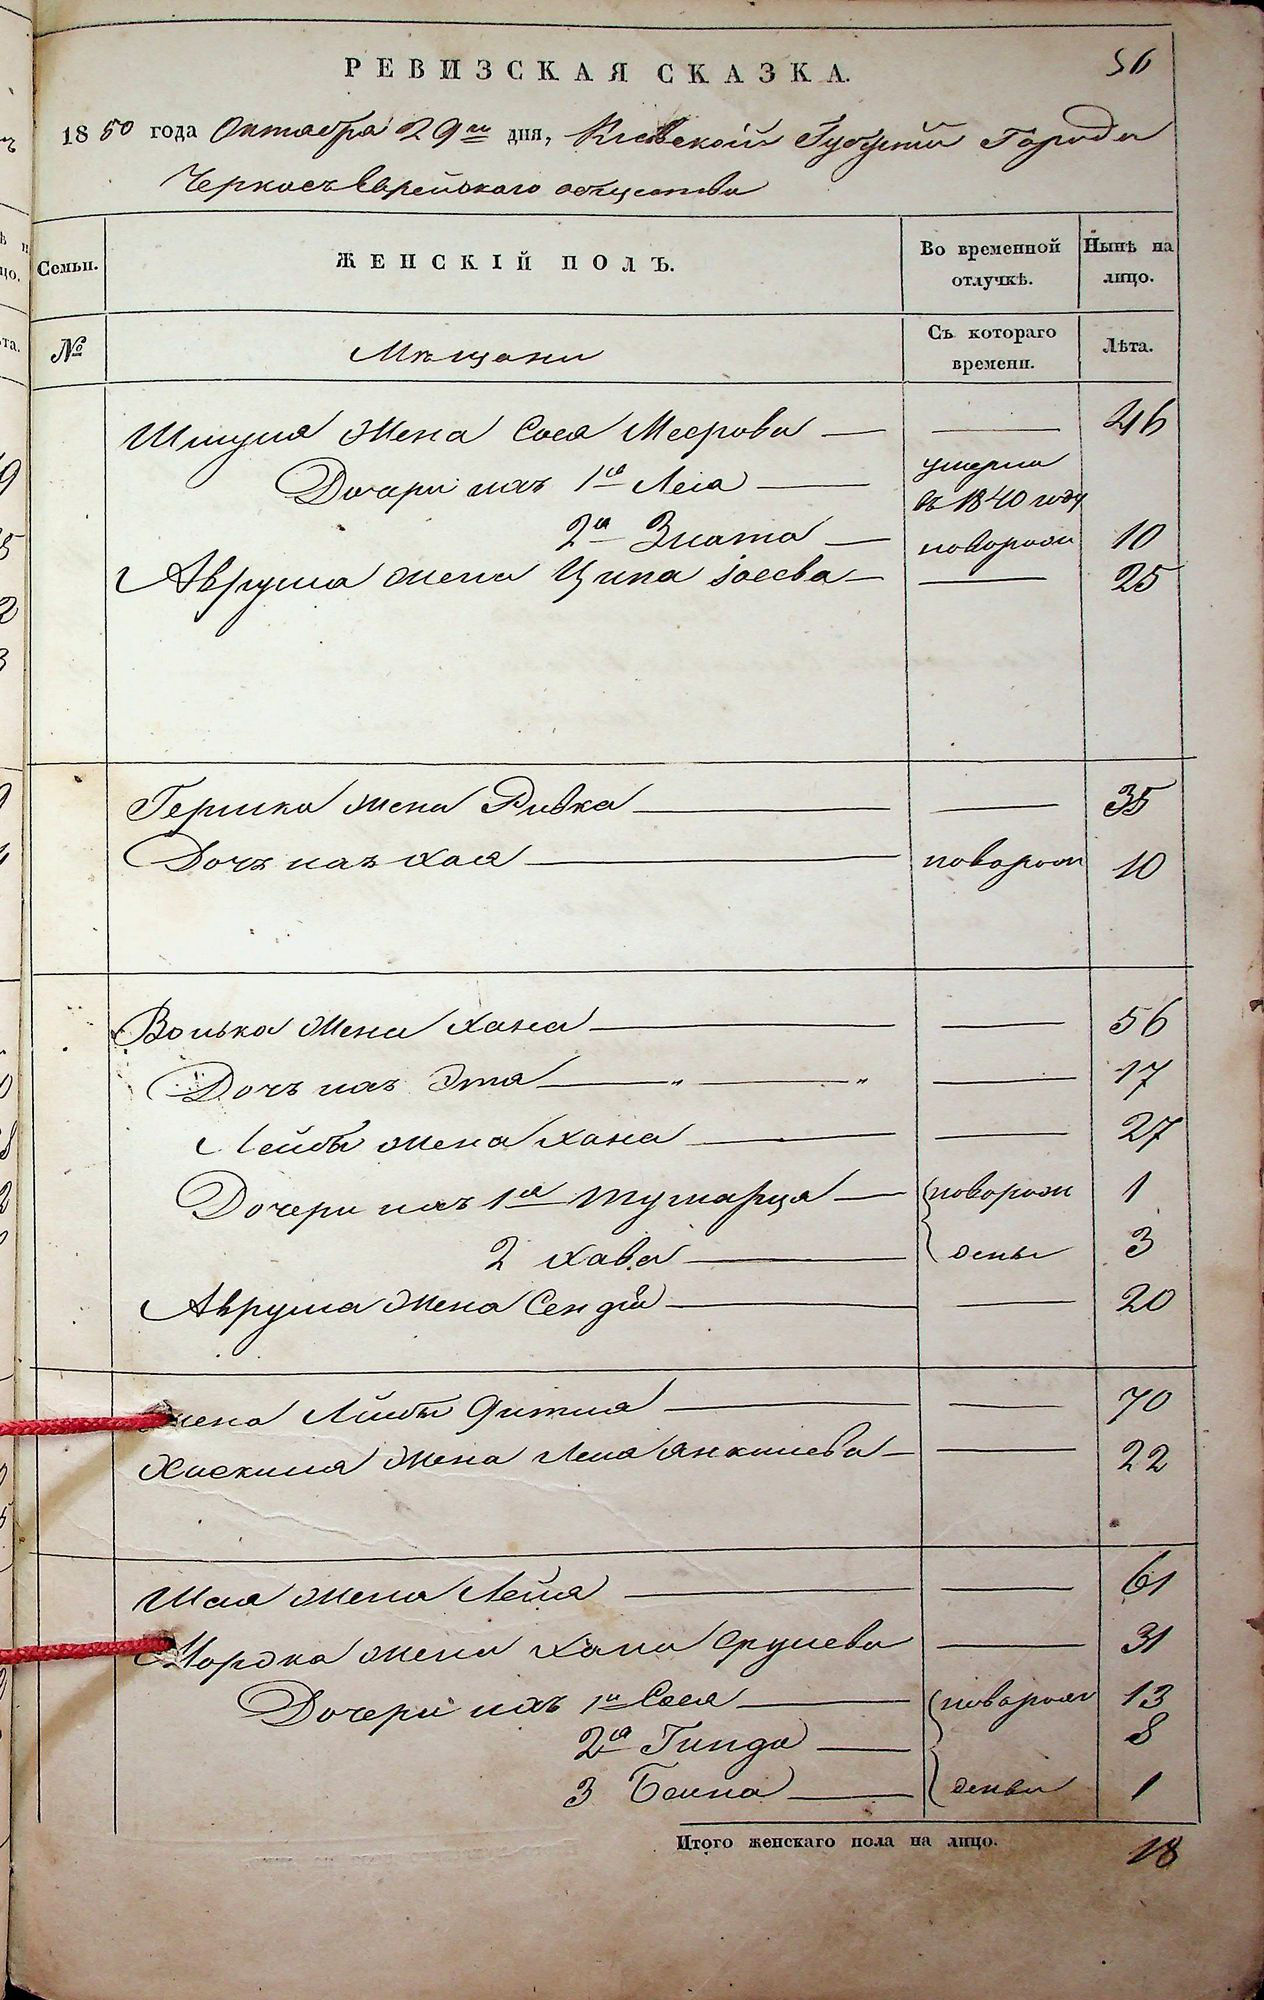 РЕВИЗСКАЯ СКАЗКА. 56
1850 года Октября 29го дня, Киевской Губерніи Города
Черкасъ Еврейского общества
Семьи. ЖЕНСКІЙ ПОЛЪ. Во временной отлучкѣ. Нынѣ на лицо.
№ Мѣщане Съ котораго времени. Лѣта.
Шмуля жена Сося Меерова — — 46
Дочери ихъ 1я Леia — умерла въ 1840 году
2я Злата — новорож 10
Аврума жена Ципа Іосева — — 25
Гершка жена Ривка — — 35
Дочь ихъ Хая — новорож 10
Волька жена Хана — — 56
Дочь ихъ Эта — „ — „ — 17
Лейбы жена Хана — — 27
Дочери ихъ 1я — новорож 1
2 Хава — дены 3
Аврума жена — — 20
жена Лейбы — — 70
Хаскиля жена Леia Янкелева — — 22
Шая жена Лейя — — 61
Мордка жена Хана Срулева — 31
Дочери ихъ 1я Сося — новорож 13
2я Гинда — 8
3 Бейла — дены 1
Итого женскаго пола на лицо. 18